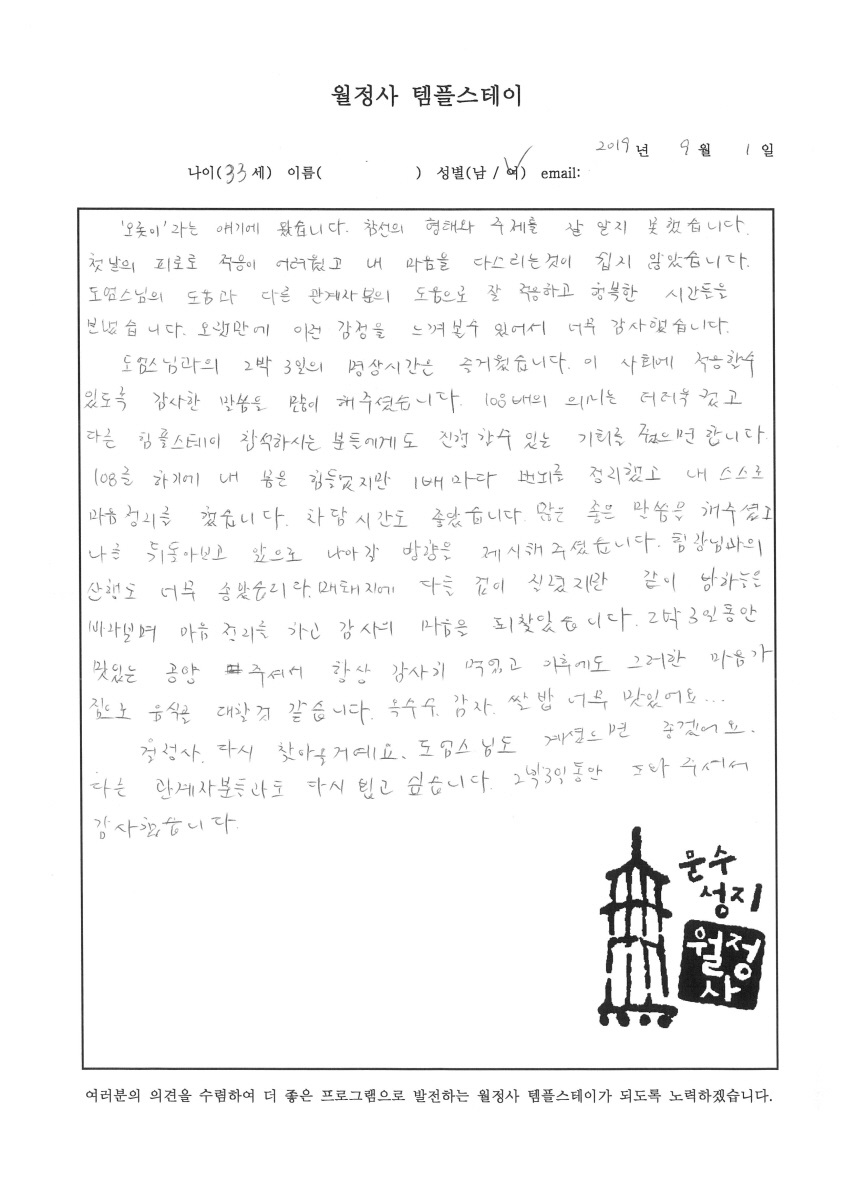 월정사 템플스테이
2019년 9월 1일
나이(33세) 이름( ) 성별(남 / 여) email:
'오롯이'라는 얘기에 왔습니다. 참선의 형태와 주제를 잘 알지 못했습니다.
첫날의 피로로 적응이 어려웠고 내 마음을 다스리는것이 쉽지 않았습니다.
도엄스님의 도움과 다른 관계자분의 도움으로 잘 적응하고 행복한 시간들을
보냈습니다. 오랜만에 이런 감정을 느껴볼수 있어서 너무 감사했습니다.
도엄스님과의 2박 3일의 명상시간은 즐거웠습니다. 이 사회에 적응할수
있도록 감사한 말씀을 많이 해주셨습니다. 108배의 의미는
다른 템플스테이 참석하시는 분들에게도 진행할수 있는 기회를 줬으면 합니다.
108를 하기에 내 몸은 힘들었지만 1배마다 번뇌를 정리했고 내 스스로
마음정리를 했습니다. 차담시간도 좋았습니다. 많은 좋은 말씀을 해주셨고
나를 뒤돌아보고 앞으로 나아갈 방향을 제시해 주셨습니다. 팀장님과의
산행도 너무 좋았습니다. 다들 겁이 같이
바라보며 마음 정리를 하고 감사의 마음을 되찾았습니다. 2박 3일동안
맛있는 공양 주셔서 항상 감사히 먹었고 이후에도 그러한 마음가
짐으로 음식을 대할것 같습니다. 옥수수, 감자, 쌀밥 너무 맛있어요...
월정사, 다시 찾아올거예요. 도엄스님도 계셨으면 좋겠어요.
다른 관계자분들과도 다시 뵙고 싶습니다. 2박3일동안 도와 주셔서
감사했습니다.
문수
성지
월정
사
여러분의 의견을 수렴하여 더 좋은 프로그램으로 발전하는 월정사 템플스테이가 되도록 노력하겠습니다.